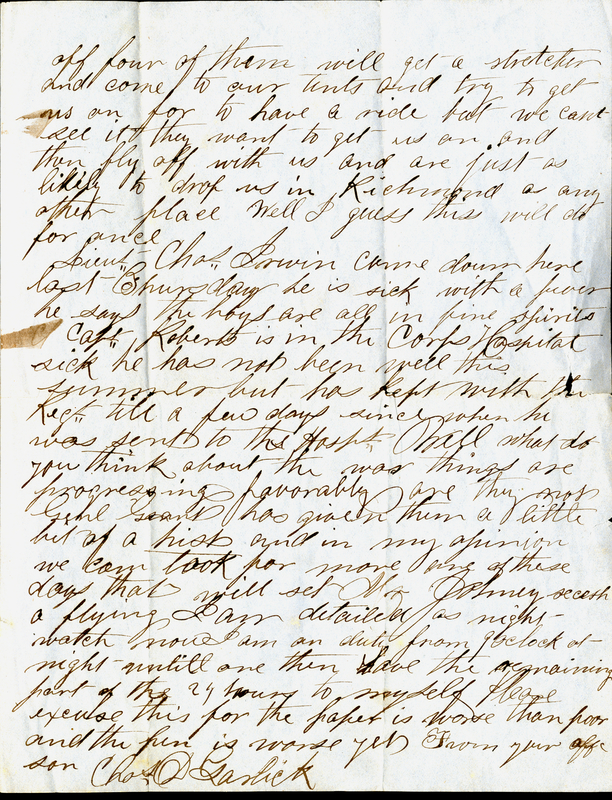 off four of them will get a stretcher
and come to our tents and try to get
us on for to have a ride but we cant
see it they want to get us on and
then fly off with us and are just as
likely to drop us in Richmond as any
other place Well I guess this will do
for once
Lieut Chas Irwin came down here
last Thursday he is sick with a fever
he says the boys are all in fine spirits
Capt Roberts is in the Corps Hospital
sick he has not been well this
summer but has kept with the
Regt till a few days since when he
was sent to the Hospt Well what do
you think about the war things are
progressing favorably are they not
Genl Grant has given them a little
bit of a hist and in my opinion
we can look for more one of these
days that will set Mr Johney secesh
a flying I am detailed as night
watch now I am on duty from 9 oclock at
night untill one then have the remaining
part of the 24 hours to myself Please
excuse this for the paper is worse than poor
and the pen is worse yet From your affc
son Chas D Garlick